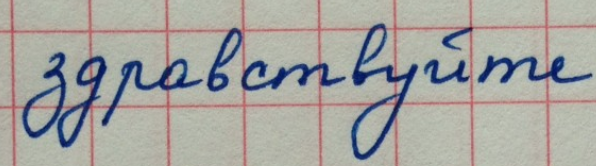 здравствуйте